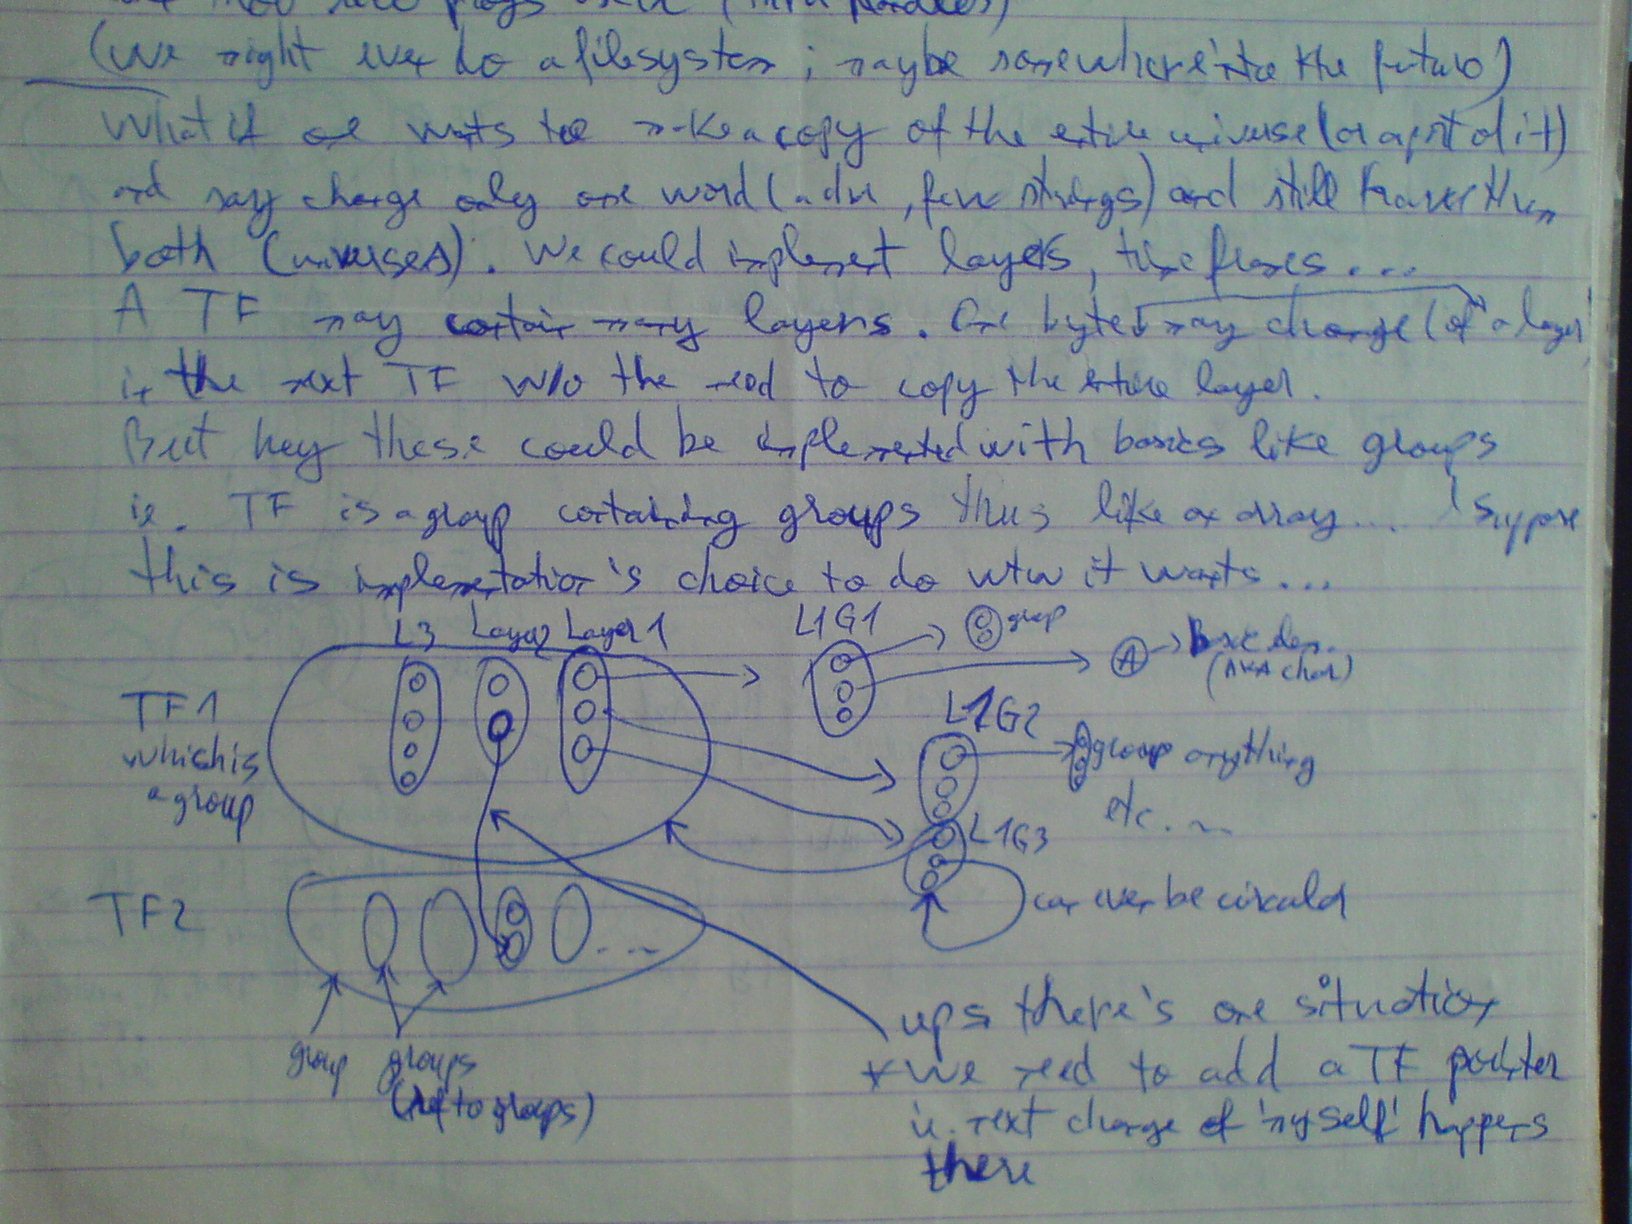 (We might even do a filesystem ; maybe somewhere into the future)
What if one wants to make a copy of the entire universe (or a part of it)
and may change only one word (adn, few strings) and still have them
both (universes). We could implement layers, time frames....
A TF may contain many layers. One byte may change (of a layer)
in the next TF w/o the need to copy the entire layer.
But hey these could be implemented with basics like groups
ie. TF is a group containing groups thus like an array... I suppose
this is implementation's choice to do wtw it wants...
L3 Layer2 Layer1 L1G1 group
A Basic elem.
(AKA char)
TF1
whish is
a group
L1G2
group anything
etc...
L1G3
TF2
can even be circular
...
group groups
(ref to groups)
ups there's one situation
* We need to add a TF pointer
ie. next change of 'myself' happens
there